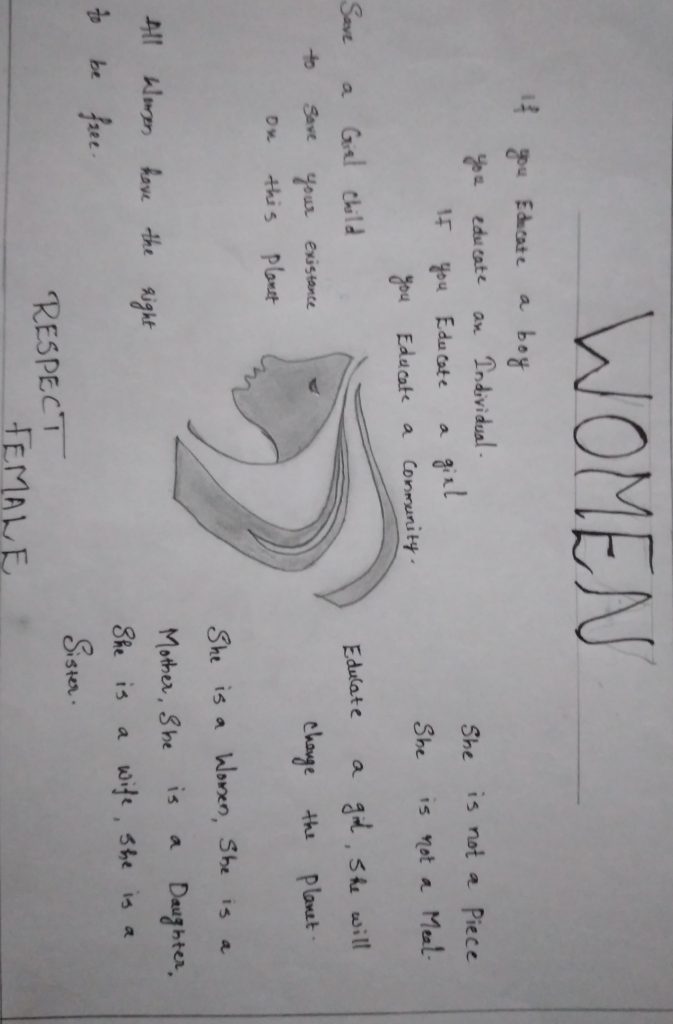 WOMEN
If you Educate a boy
you educate an Individual.
If you Educate a girl
you Educate a community.
Save a Girl child
to save your existance
on this planet
All Women have the right
to be free.
She is not a Piece
She is not a Meal.
Educate a girl, She will
change the planet.
She is a Women, She is a
Mother, She is a Daughter,
She is a wife, She is a
Sister.
RESPECT
FEMALE